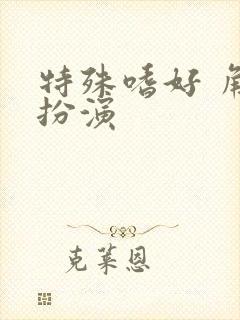 特殊嗜好 角
扮演
克莱恩